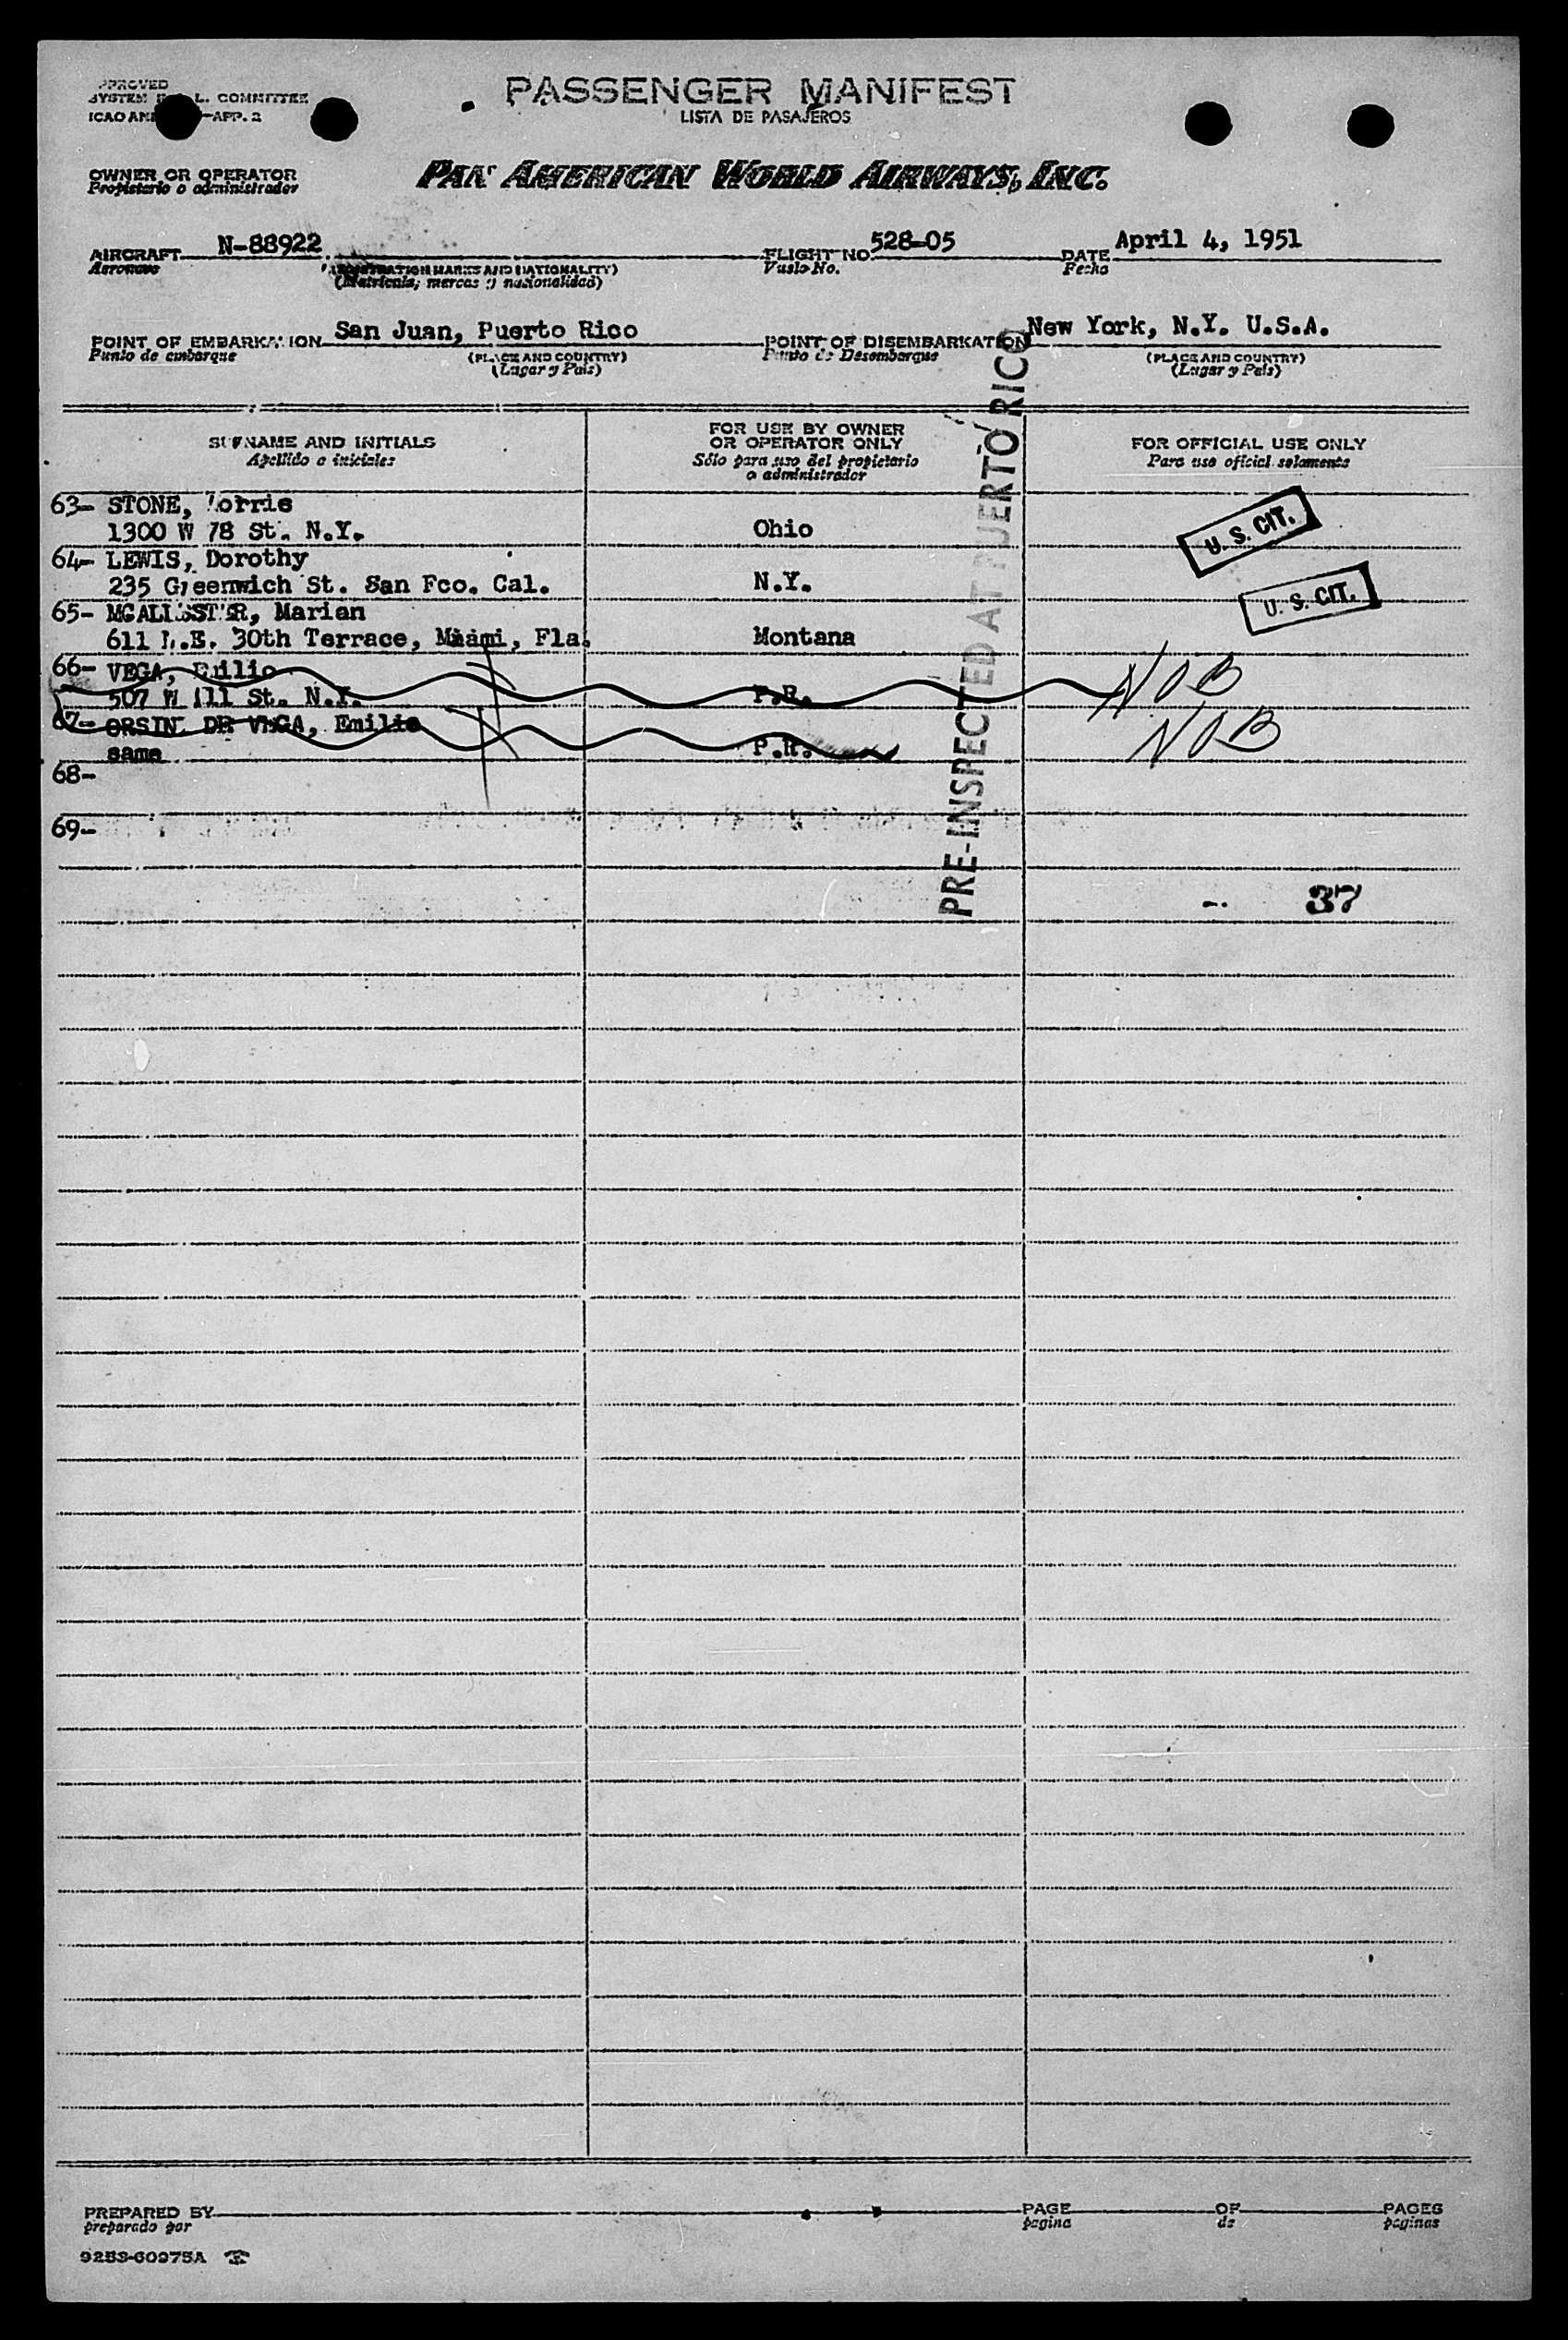 PASSENGER MANIFEST
LISTA DE PASAJEROS
L. COMMITTEE
APP. 2
OWNER OR OPERATOR
Propietario o administrador
PAN AMERICAN WORLD AIRWAYS, INC.
AIRCRAFT N-88922 FLIGHT NO. 528-05 DATE April 4, 1951
Aeronave (REGISTRATION MARKS AND NATIONALITY) Vuelo No. Fecha
(Matricula, marcas y nacionalidad)
POINT OF EMBARKATION San Juan, Puerto Rico POINT OF DISEMBARKATION New York, N.Y. U.S.A.
Punto de embarque (PLACE AND COUNTRY) Punto de Desembarque (PLACE AND COUNTRY)
(Lugar y Pais) (Lugar y Pais)
SURNAME AND INITIALS FOR USE BY OWNER OR OPERATOR ONLY FOR OFFICIAL USE ONLY
Apellido e iniciales Sólo para uso del propietario o administrador Para uso oficial solamente
PRE-INSPECTED AT PUERTO RICO
63- STONE,
1300 W 78 St. N.Y. Ohio U. S. CIT.
64- LEWIS, Dorothy
235 Greenwich St. San Fco. Cal. N.Y. U. S. CIT.
65- MCALLISTER, Marian
611 N.E. 30th Terrace, Miami, Fla. Montana
66- VEGA, Emilio NOB
507 W 111 St. N.Y. P.R.
67- DE VEGA, Emilia NOB
same P.R.
68-
69-
37
PREPARED BY PAGE OF PAGES
preparado por pagina de paginas
9253-60975A